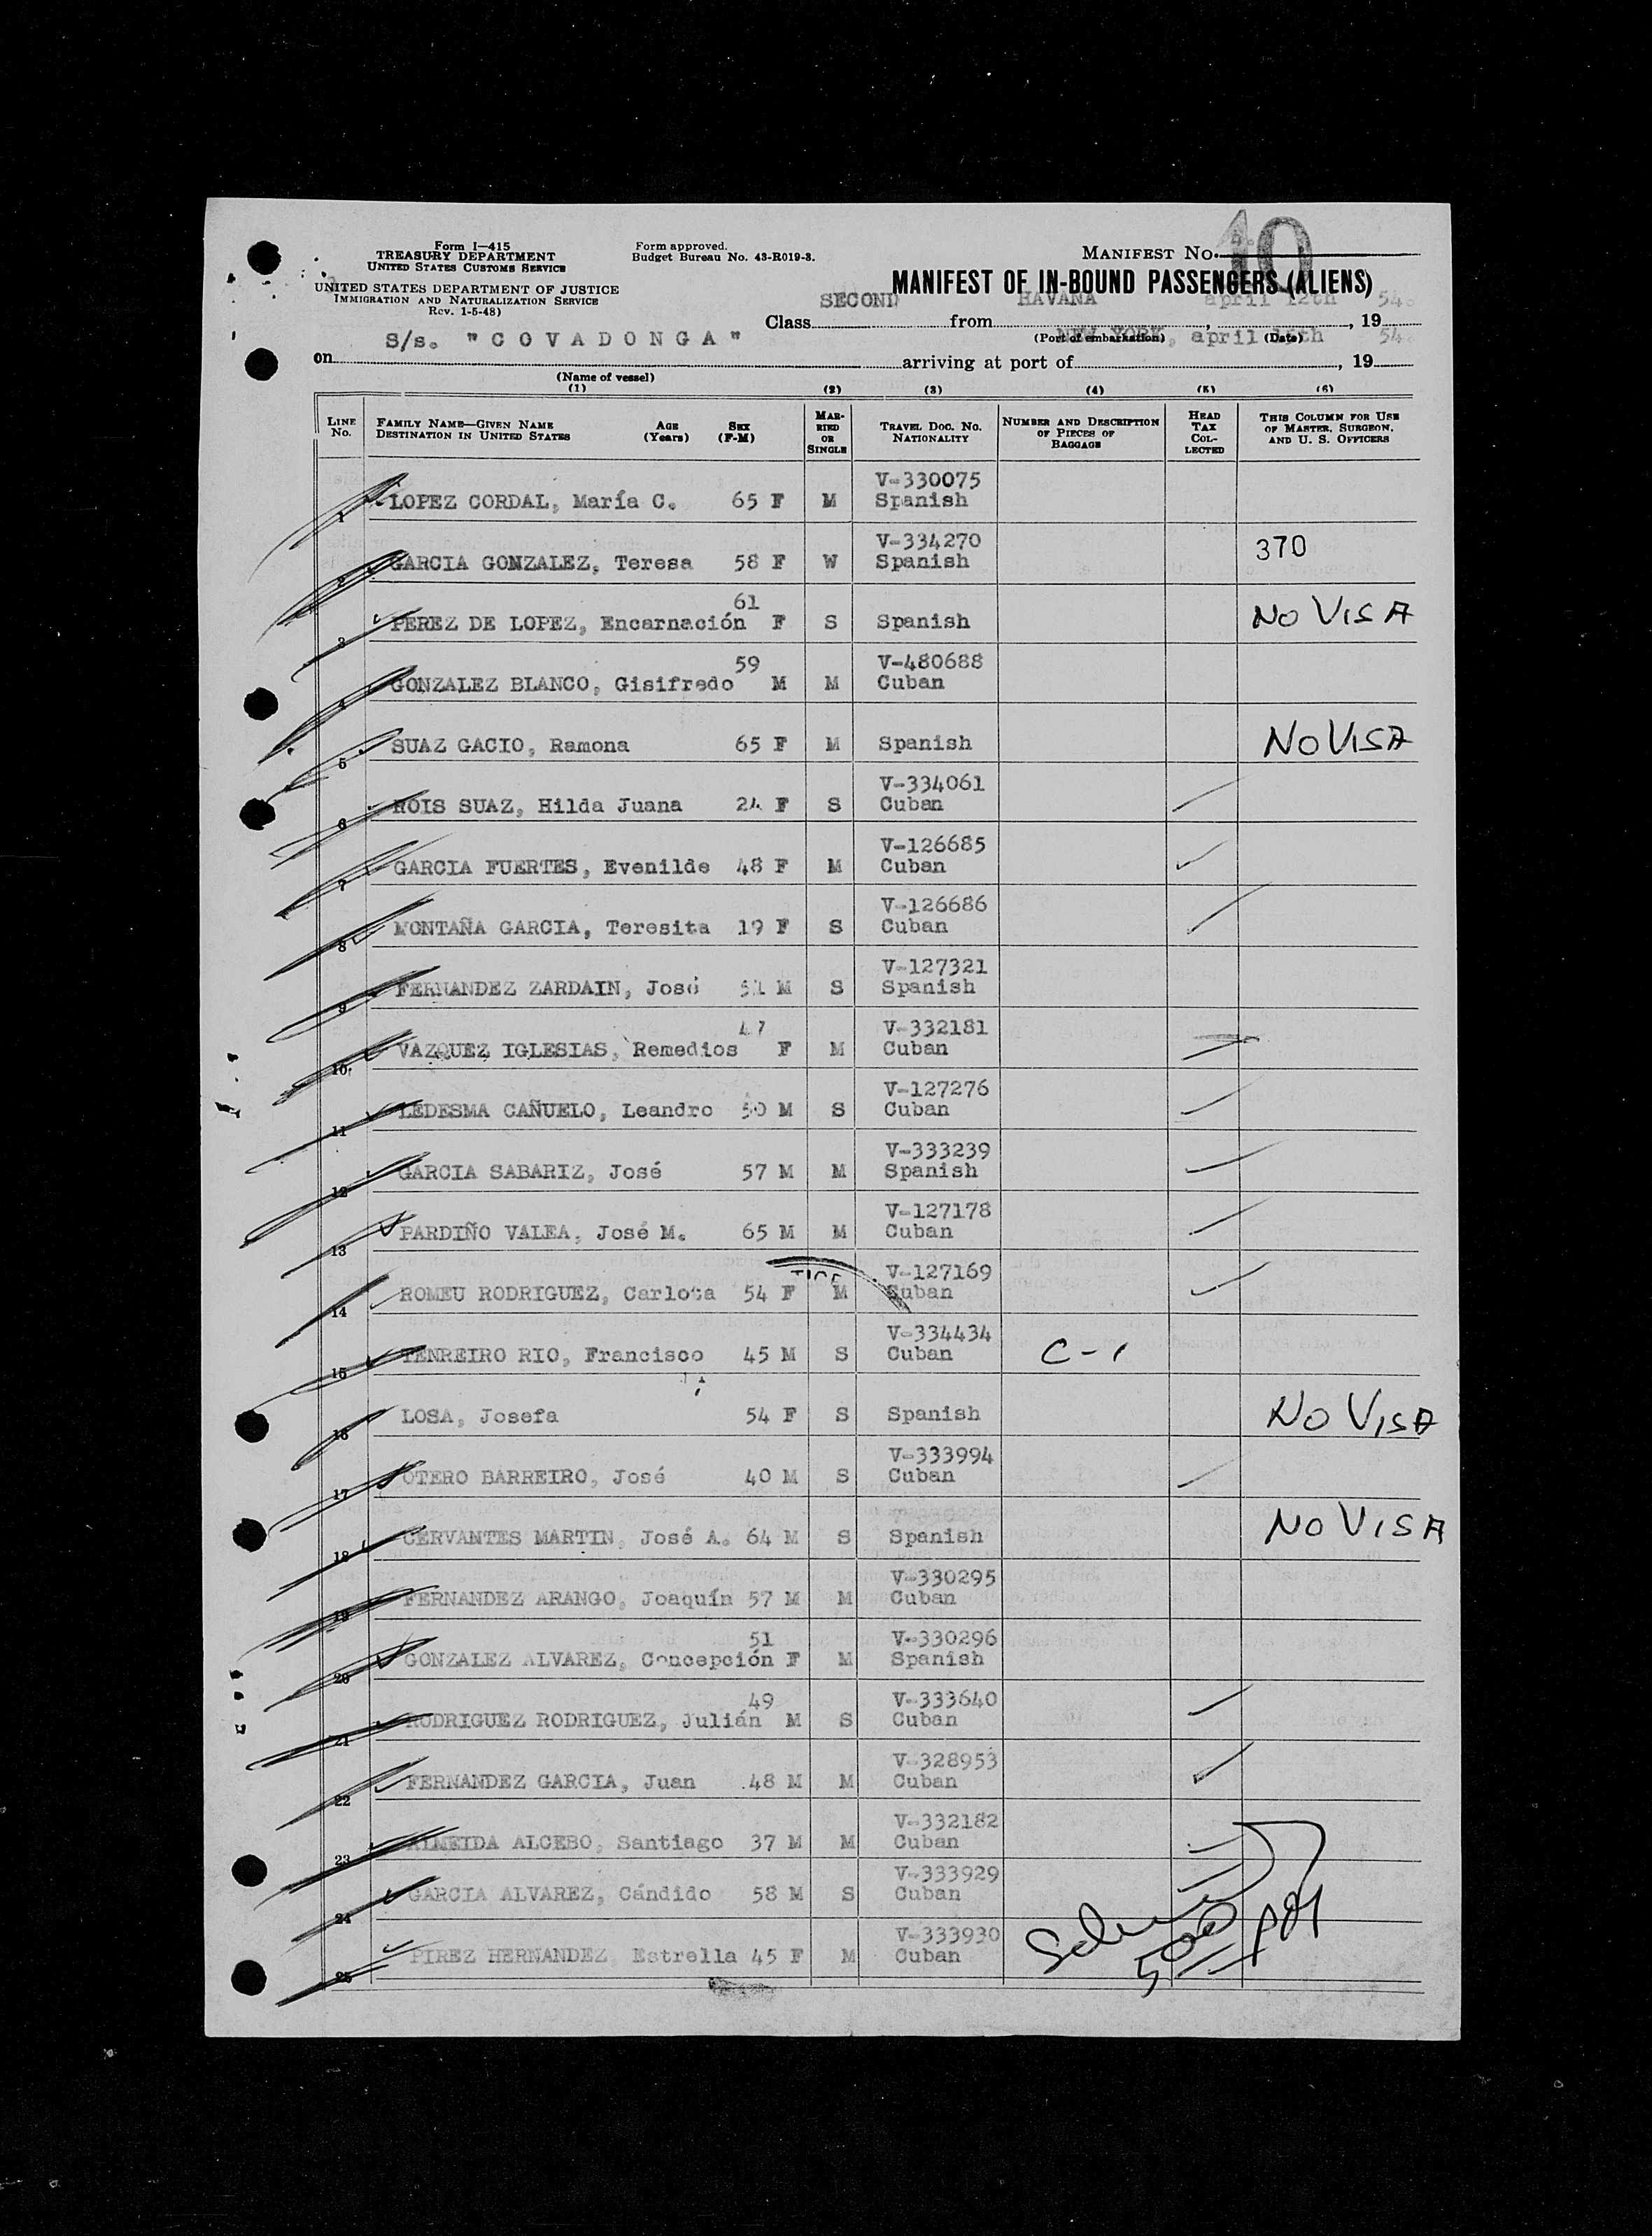 Form I—415
TREASURY DEPARTMENT
UNITED STATES CUSTOMS SERVICE
UNITED STATES DEPARTMENT OF JUSTICE
IMMIGRATION AND NATURALIZATION SERVICE
Rev. 1-5-48)
Form approved.
Budget Bureau No. 43-R019-3.
MANIFEST No.
10
MANIFEST OF IN-BOUND PASSENGERS (ALIENS)
Class SECOND from HAVANA, april 12th, 1954
(Port of embarkation) (Date)
on S/s. "COVADONGA" arriving at port of NEW YORK, april 16th, 1954
(Name of vessel)
(1) (2) (3) (4) (5) (6)
LINE No. FAMILY NAME—GIVEN NAME DESTINATION IN UNITED STATES AGE (Years) SEX (F-M) MARRIED OR SINGLE TRAVEL DOC. No. NATIONALITY NUMBER AND DESCRIPTION OF PIECES OF BAGGAGE HEAD TAX COLLECTED THIS COLUMN FOR USE OF MASTER, SURGEON, AND U. S. OFFICERS
1 LOPEZ CORDAL, María C. 65 F M V-330075 Spanish
2 GARCIA GONZALEZ, Teresa 58 F W V-334270 Spanish 370
3 PEREZ DE LOPEZ, Encarnación 61 F S Spanish NO VISA
4 GONZALEZ BLANCO, Gisifredo 59 M M V-480688 Cuban
5 SUAZ GACIO, Ramona 65 F M Spanish NO VISA
6 ROIS SUAZ, Hilda Juana 24 F S V-334061 Cuban
7 GARCIA FUERTES, Evenilde 48 F M V-126685 Cuban
8 MONTAÑA GARCIA, Teresita 19 F S V-126686 Cuban
9 FERNANDEZ ZARDAIN, José 51 M S V-127321 Spanish
10 VAZQUEZ IGLESIAS, Remedios 47 F M V-332181 Cuban
11 LEDESMA CAÑUELO, Leandro 50 M S V-127276 Cuban
12 GARCIA SABARIZ, José 57 M M V-333239 Spanish
13 PARDIÑO VALEA, José M. 65 M M V-127178 Cuban
14 ROMEU RODRIGUEZ, Carlota 54 F M V-127169 Cuban
15 TENREIRO RIO, Francisco 45 M S V-334434 Cuban C-1
16 LOSA, Josefa 54 F S Spanish NO VISA
17 OTERO BARREIRO, José 40 M S V-333994 Cuban
18 CERVANTES MARTIN, José A. 64 M S Spanish NO VISA
19 FERNANDEZ ARANGO, Joaquín 57 M M V-330295 Cuban
20 GONZALEZ ALVAREZ, Concepción 51 F M V-330296 Spanish
21 RODRIGUEZ RODRIGUEZ, Julián 49 M S V-333640 Cuban
22 FERNANDEZ GARCIA, Juan 48 M M V-328953 Cuban
23 ALMEIDA ALCEBO, Santiago 37 M M V-332182 Cuban
24 GARCIA ALVAREZ, Cándido 58 M S V-333929 Cuban
25 PIREZ HERNANDEZ Estrella 45 F M V-333930 Cuban
500 PM